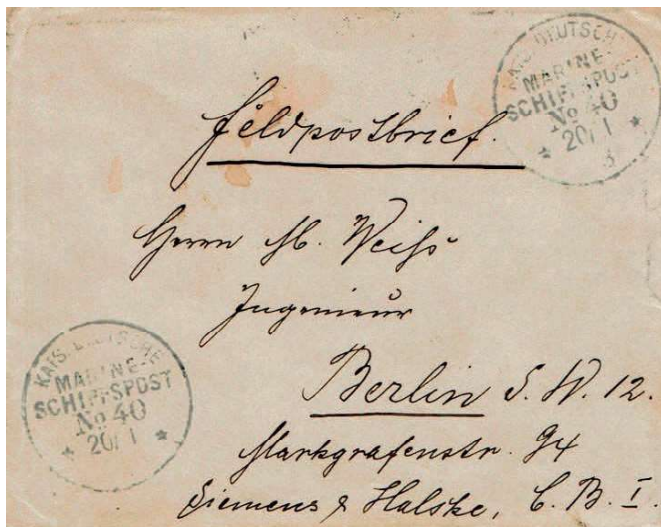 Feldpostbrief.
KAIS. DEUTSCHE
MARINE-
SCHIFFSPOST
No 40
20/1
3
Herrn M. Weiſs
Ingenieur
Berlin S. W. 12.
Markgrafenstr. 94
Siemens & Halske, C. B. I.
KAIS. DEUTSCHE
MARINE-
SCHIFFSPOST
No 40
20/1